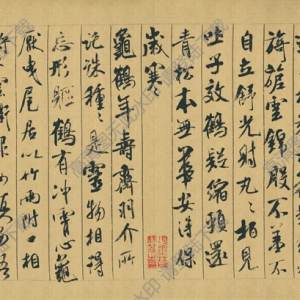 旖旎雲錦殷不羞不
自立舒光射丸丸栢見
吐子效鶴疑縮頸還
青松本無華安得保
歲寒
龜鶴年壽齊羽介所
託殊種種是靈物相得
忘形軀鶴有沖霄心龜
厭曳尾居以竹兩附口相